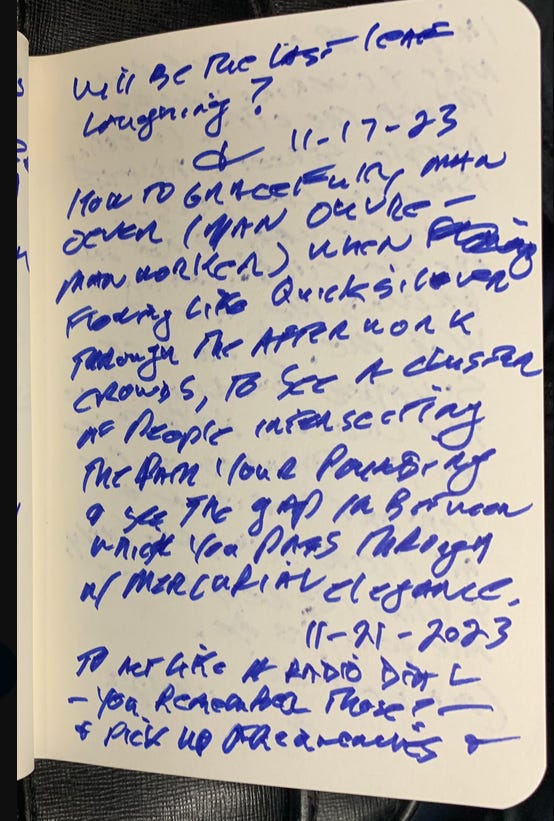 will Be The Last leaf
Laughing?
11-17-23
How To Gracefully MAN
OEVER (MAN OEUVRE -
MAN WORKER) when
Flowing like Quicksilver
Through The AFTER WORK
CROWDS, To See A cluster
of People intersecting
The Path Your
& see The gap in Between
which You Pass Through
w/ MERCURIAL elegance.
11-21-2023
To Act Like A RADIO DIAL
- You Remember Those? -
& Pick up Frequencies &